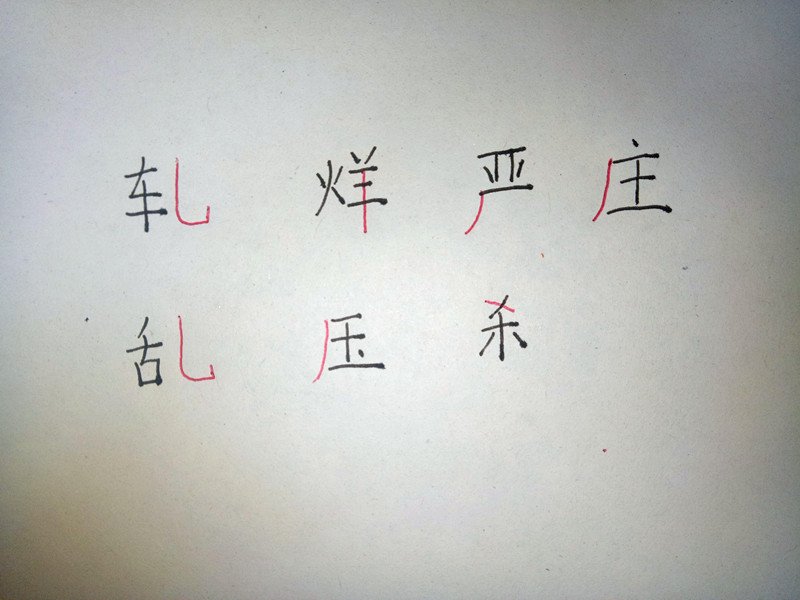 轧 烊 严 庄
乱 压 杀